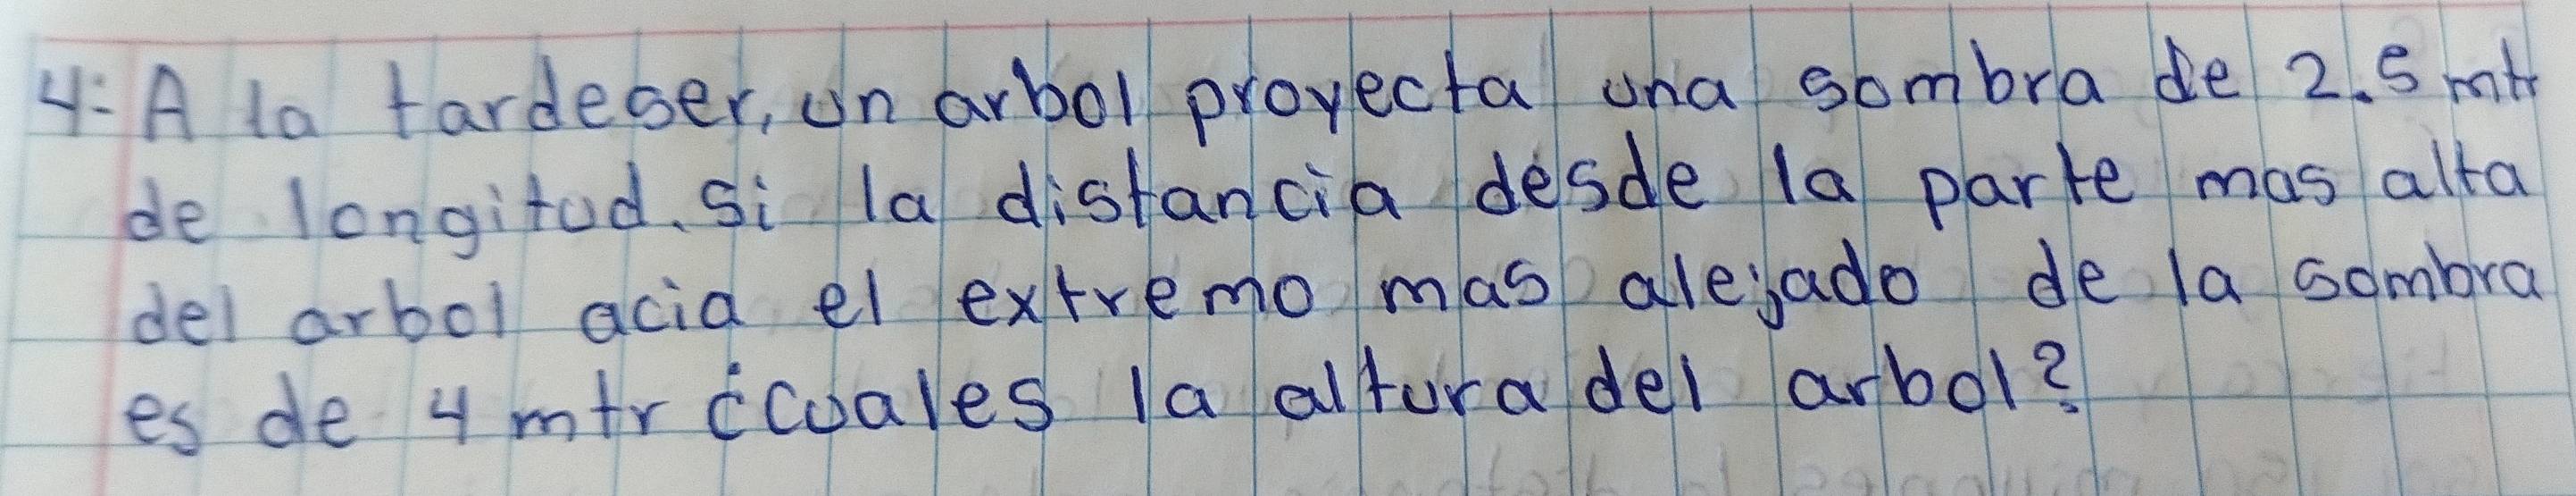 4: A la tardeser, un arbol proyecta una sombra de 2.5 mtr
de longitud. si la distancia desde la parte mas alta
del arbol acia el extremo mas alejado de la sombra
es de 4 mtr ¿cuales la altura del arbol?